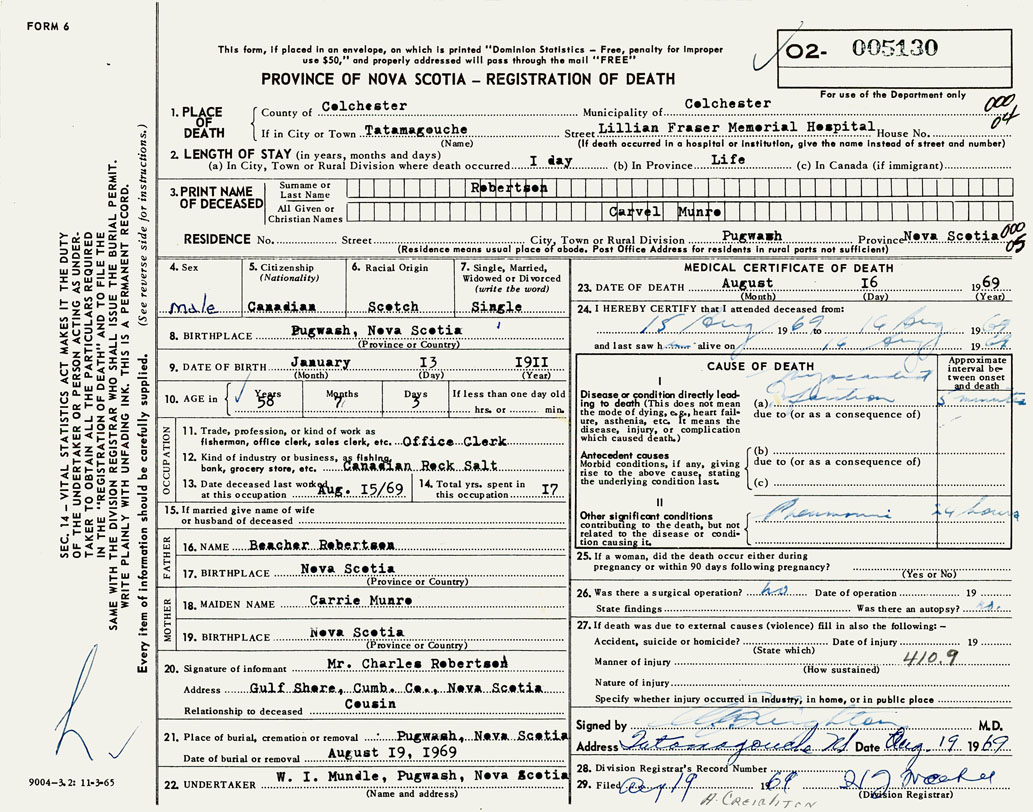 FORM 6
This form, if placed in an envelope, on which is printed "Dominion Statistics – Free, penalty for improper
use $50," and properly addressed will pass through the mail "FREE"
PROVINCE OF NOVA SCOTIA – REGISTRATION OF DEATH
O2- 005130
For use of the Department only
000
04
1. PLACE OF DEATH
County of Colchester Municipality of Colchester
If in City or Town Tatamagouche Street Lillian Fraser Memorial Hospital House No.
(Name) (If death occurred in a hospital or institution, give the name instead of street and number)
2. LENGTH OF STAY (in years, months and days)
(a) In City, Town or Rural Division where death occurred I day (b) In Province Life (c) In Canada (if immigrant)
3. PRINT NAME OF DECEASED
Surname or Last Name Robertson
All Given or Christian Names Carvel Munro
RESIDENCE No. Street City, Town or Rural Division Pugwash Province Nova Scotia
000
05
(Residence means usual place of abode. Post Office Address for residents in rural parts not sufficient)
4. Sex
male
5. Citizenship
(Nationality)
Canadian
6. Racial Origin
Scotch
7. Single, Married,
Widowed or Divorced
(write the word)
Single
8. BIRTHPLACE Pugwash, Nova Scotia
(Province or Country)
9. DATE OF BIRTH January I3 I9II
(Month) (Day) (Year)
10. AGE in Years 58 Months 7 Days 3 If less than one day old
hrs. or min.
OCCUPATION
11. Trade, profession, or kind of work as
fisherman, office clerk, sales clerk, etc. Office Clerk
12. Kind of industry or business, as fishing,
bank, grocery store, etc. Canadian Rock Salt
13. Date deceased last worked
at this occupation Aug. I5/69
14. Total yrs. spent in
this occupation I7
15. If married give name of wife
or husband of deceased
FATHER
16. NAME Beacher Robertson
17. BIRTHPLACE Nova Scotia
(Province or Country)
MOTHER
18. MAIDEN NAME Carrie Munro
19. BIRTHPLACE Nova Scotia
(Province or Country)
20. Signature of informant Mr. Charles Robertson
Address Gulf Shore, Cumb. Co., Nova Scotia
Relationship to deceased Cousin
21. Place of burial, cremation or removal Pugwash, Nova Scotia
Date of burial or removal August I9, I969
22. UNDERTAKER W. I. Mundle, Pugwash, Nova Scotia
(Name and address)
MEDICAL CERTIFICATE OF DEATH
23. DATE OF DEATH August I6 1969
(Month) (Day) (Year)
24. I HEREBY CERTIFY that I attended deceased from:
15 Aug 1969 to 16 Aug 1969
and last saw h alive on 16 Aug 1969
CAUSE OF DEATH
Approximate
interval be-
tween onset
and death
I
Disease or condition directly lead-
ing to death (This does not mean
the mode of dying, e.g., heart fail-
ure, asthenia, etc. It means the
disease, injury, or complication
which caused death.)
(a) Myocardial
5 minutes
due to (or as a consequence of)
Antecedent causes
Morbid conditions, if any, giving
rise to the above cause, stating
the underlying condition last.
(b)
due to (or as a consequence of)
(c)
II
Other significant conditions
contributing to the death, but not
related to the disease or condi-
tion causing it.
Pneumonia 24 hours
25. If a woman, did the death occur either during
pregnancy or within 90 days following pregnancy?
(Yes or No)
26. Was there a surgical operation? no Date of operation 19
State findings Was there an autopsy? no.
27. If death was due to external causes (violence) fill in also the following: –
Accident, suicide or homicide? Date of injury 19
(State which)
Manner of injury 410.9
(How sustained)
Nature of injury
Specify whether injury occurred in industry, in home, or in public place
Signed by M.D.
Address Tatamagouche NS Date Aug. 19 1969
28. Division Registrar's Record Number
29. Filed Aug 19 1969
(Division Registrar)
A. CREIGHTON
SEC. 14 – VITAL STATISTICS ACT MAKES IT THE DUTY
OF THE UNDERTAKER OR PERSON ACTING AS UNDER-
TAKER TO OBTAIN ALL THE PARTICULARS REQUIRED
IN THE "REGISTRATION OF DEATH" AND TO FILE THE
SAME WITH THE DIVISION REGISTRAR WHO SHALL ISSUE THE BURIAL PERMIT.
WRITE PLAINLY WITH UNFADING INK. THIS IS A PERMANENT RECORD.
Every item of information should be carefully supplied. (See reverse side for instructions.)
9004-3.2: 11-3-65